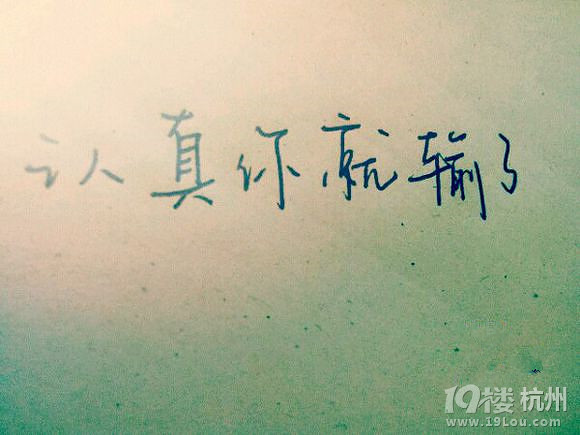 认真你就输了
19楼 杭州
www.19lou.com